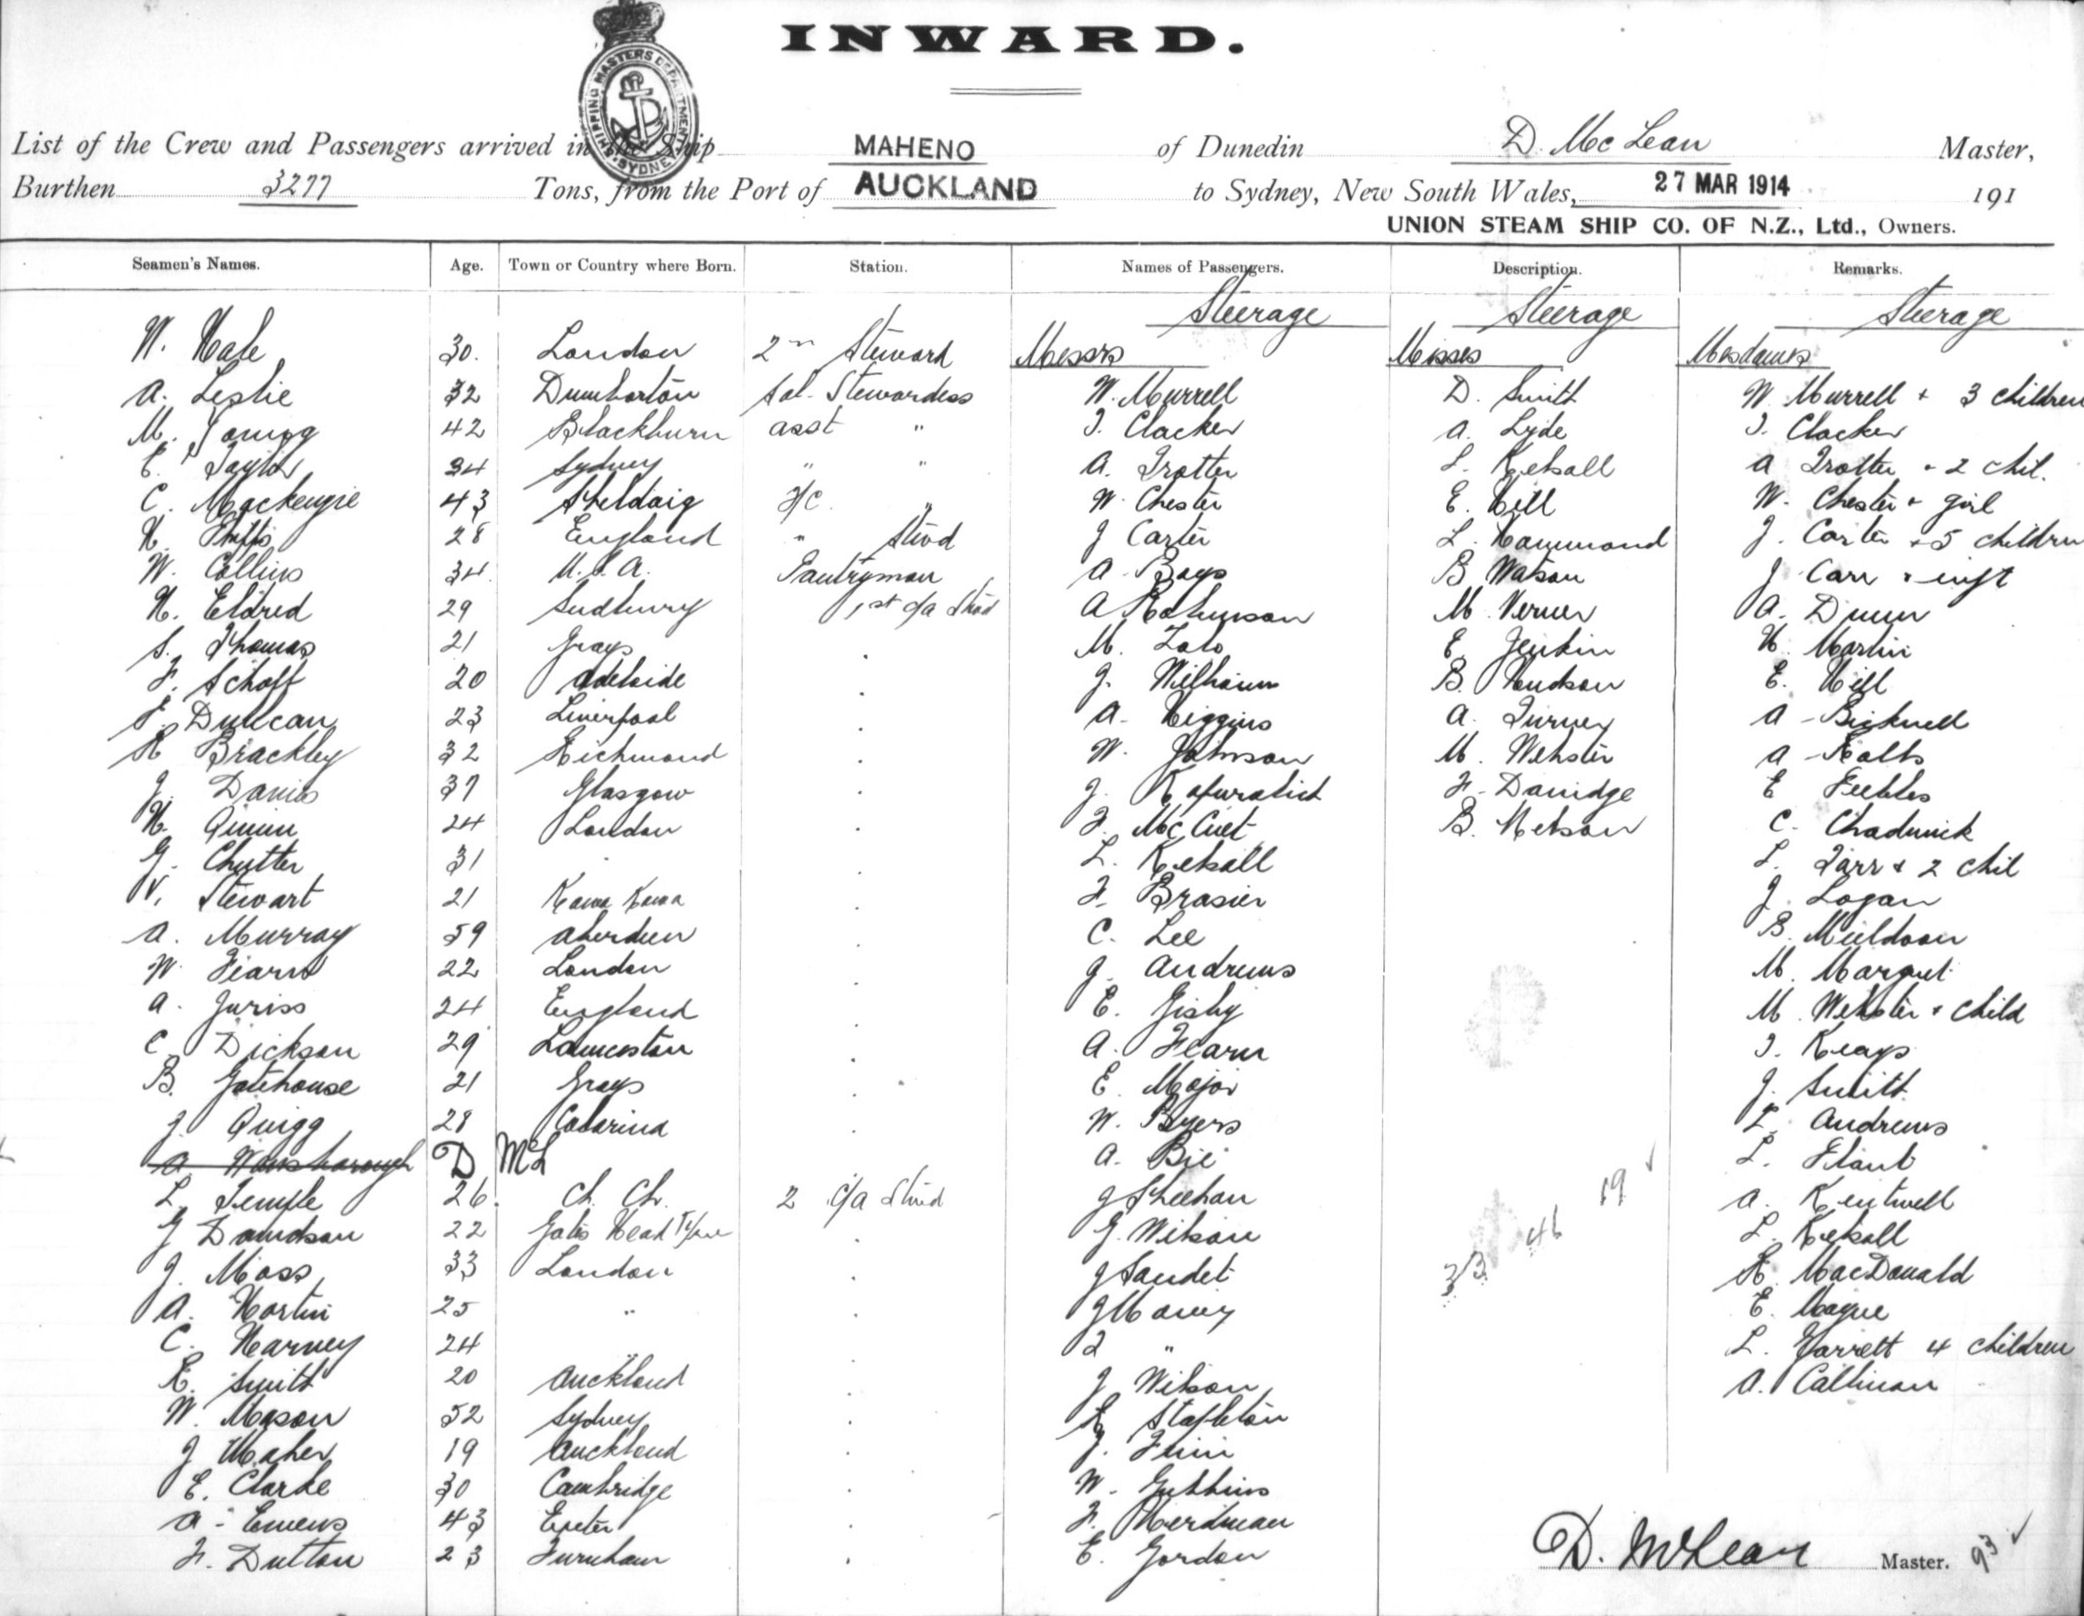 INWARD.
SHIPPING MASTERS DEPARTMENT SYDNEY
List of the Crew and Passengers arrived in the Ship MAHENO of Dunedin D. McLean Master,
Burthen 3277 Tons, from the Port of AUCKLAND to Sydney, New South Wales, 27 MAR 1914 191
UNION STEAM SHIP CO. OF N.Z., Ltd., Owners.
Seamen's Names. Age. Town or Country where Born. Station. Names of Passengers. Description. Remarks.
Steerage Steerage Steerage
W. Hale 30. London 2nd Steward Messrs Misses Mesdames
A. Leslie 32 Dumbarton Sal. Stewardess W. Murrell D. Smith W. Murrell + 3 children
M. Young 42 Blackburn asst " J. Clacker A. Lyde J. Clacker
E. Taylor 34 Sydney " " A. Trotter L. Kelsall A Trotter + 2 chil.
C. Mackenzie 43 Sheldaig F/C " W. Chester E. Hill W. Chester + girl
H. Phipps 28 England " Stwd J Carter L. Hammond J. Carter + 5 children
W. Collins 34 U.S.A. Pantryman A. Boys B Watson J Carr + inft
H. Eldred 29 Sudbury 1st c/a Stwd A Robinson M. Verner A. Dunn
S. Thomas 21 Grays M. E. Jenkin H. Martin
F. Schoff 20 Adelaide J. Williams B. Hudson E. Hill
F. Duncan 23 Liverpool A. Higgins A. Turney A. Bicknell
H Brackley 32 Richmond W. Johnson M. Webster A
J. Davis 37 Glasgow J. F. Davidge E Peebles
H. Quinn 24 London F. B. Nelson C. Chadwick
G. Chutter 31 L. Kelsall L. Tarr + 2 chil
V. Stewart 21 Kawa Kawa F. Brasier J. Logan
A. Murray 59 Aberdeen C. Lee B. Muldoon
W. Fearn 22 London J. Andrews M.
A. Juriss 24 England E. Gisby M. Webster + child
C Dickson 29 Launceston A. Fearn J. Keays
B. Gatehouse 21 Grays E. Major J. Smith
J. Quigg 28 W. Byers L. Andrews
A Wansborough D McL A. L. Flant
L. Temple 26. Ch. Ch. 2 c/a Stwd J Sheehan A. Kentwell
G Davidson 22 Gates Head Tyne G. Wilson L. Kelsall
J. Moss 33 London J MacDonald
A. Hortin 25 " J E. Hague
C. Harvey 24 " L. Garrett 4 children
R. Smith 20 Auckland J Wilson A.
W. Mason 52 Sydney Stapleton
J Maher 19 Auckland J. Finn
E. Clarke 30 Cambridge W. Gubbins
A. Emens 43 Exeter F. Herdman
F. Dutton 23 Farnham E. Gordon
33 46 19
D. McLean Master. 93